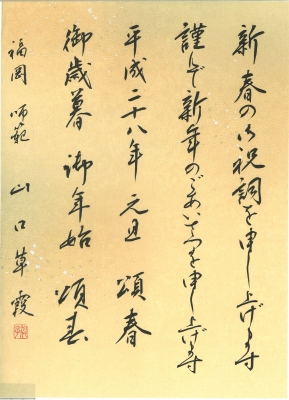 新春の御祝詞を申し上げます
謹んで新年のごあいさつを申し上げます
平成二十八年 元旦 頌春
御歳暮 御年始 頌春
福岡 師範 山口草霞